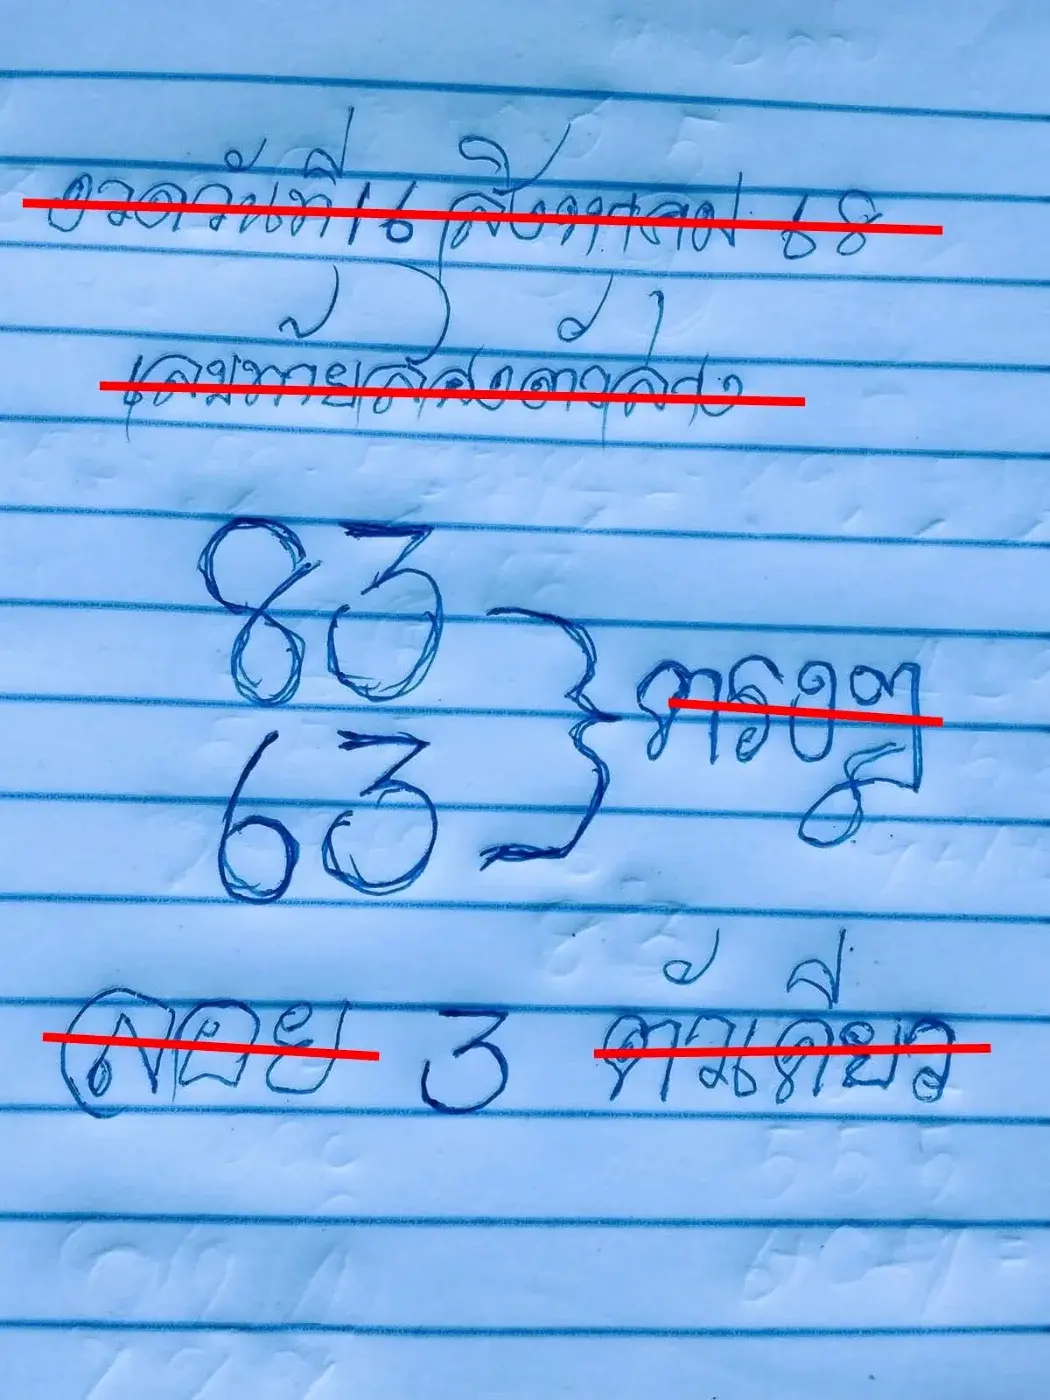 งวดวันที่ 16 สิงหาคม 68
เลขท้ายสองตัวล่าง
83
63
ตรงๆ
ลอย 3 ตัวเดียว